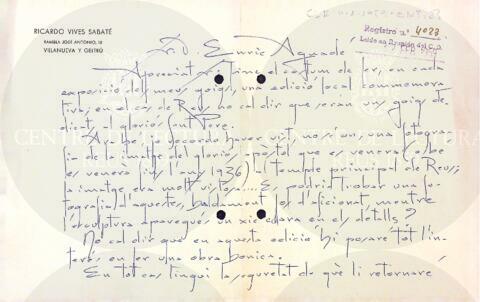 RICARDO VIVES SABATÉ
RAMBLA JOSÉ ANTONIO, 18
VILLANUEVA Y GELTRÚ
Registro nº 4023
Leído en Reunión del C.D.
Sr. D. Enric Aguadé
Apreciat : Tinc el costum de fer, en cada
exposició de meus goigs, una edició local commemora
tiva; en el cas de Reus, no cal dir que seran uns goig de-
dicat al gloriós Sant Pere.
Ara bé: recordo haver vist no sé on, una fotogra-
fia de la imatge del gloriós apòstol que es venera (o bé
es venerà fins l'any 1936) al temple principal de Reus;
la imatge era molt vistosa... Es podria trobar una fo-
tografia d'aquestes, baldament fos d'aficionat, mentre
l'escultura aparegués un xic clara en els detalls?
No cal dir que en aquesta edició hi posaré tot l'in-
terès en fer una obra bonica.
En tot cas tingui la seguretat de què li retornaré